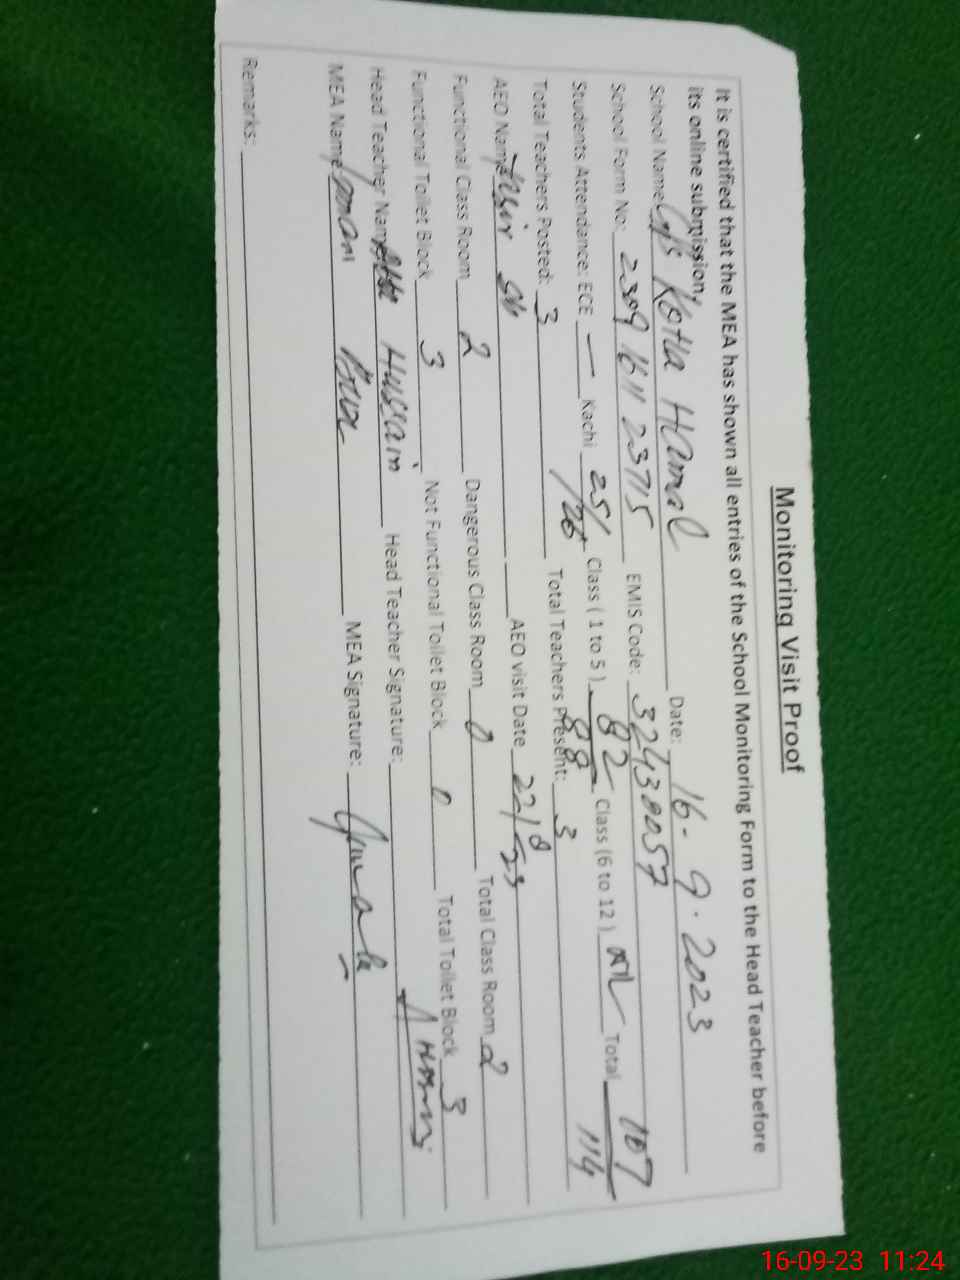 Monitoring Visit Proof
It is certified that the MEA has shown all entries of the School Monitoring Form to the Head Teacher before
its online submission.
School Name: G/S Kotla Hamal Date: 16-9-2023
School Form No: 2309 1611 23715 EMIS Code: 32430057
Students Attendance: ECE — Kachi 25/26 Class (1 to 5) 82/88 Class (6 to 12) Total 107/114
Total Teachers Posted: 3 Total Teachers Present: 3
AEO Name AEO visit Date 22/8/23
Functional Class Room 2 Dangerous Class Room 0 Total Class Room 2
Functional Toilet Block 3 Not Functional Toilet Block 0 Total Toilet Block 3
Head Teacher Name Hussain Head Teacher Signature:
MEA Name MEA Signature:
Remarks:
16-09-23 11:24